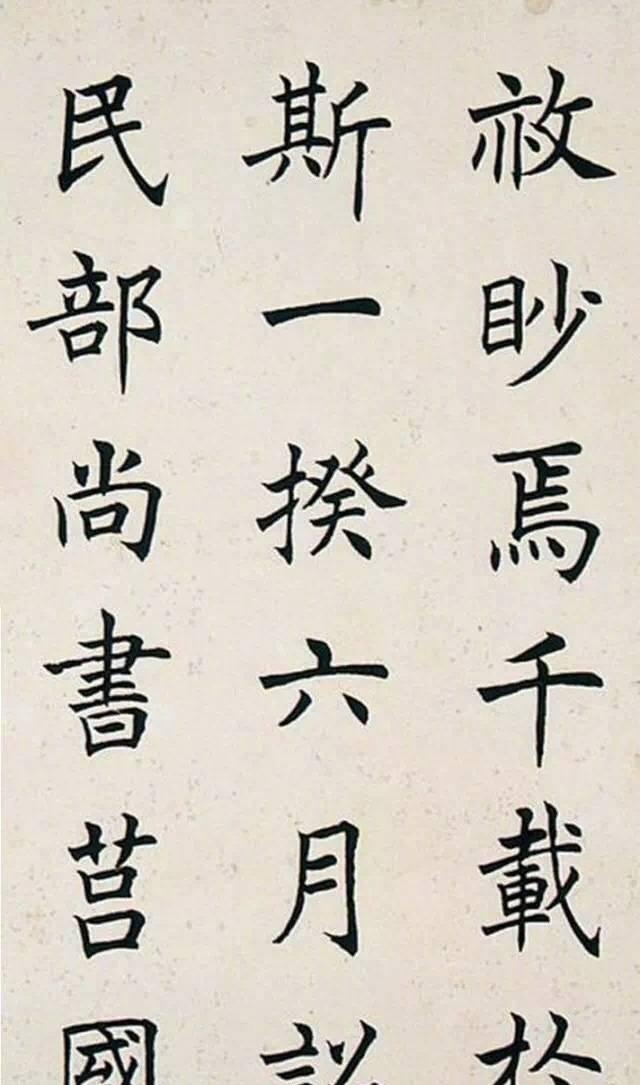 赦眇焉千載於
斯一揆六月詔
民部尚書莒國